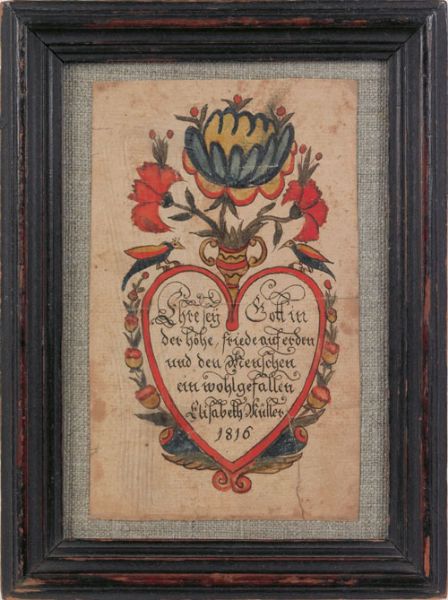 Ehre sey Gott in
der höhe, friede auf erden
und den Menschen
ein wohlgefallen
Elisabeth Müller
1816